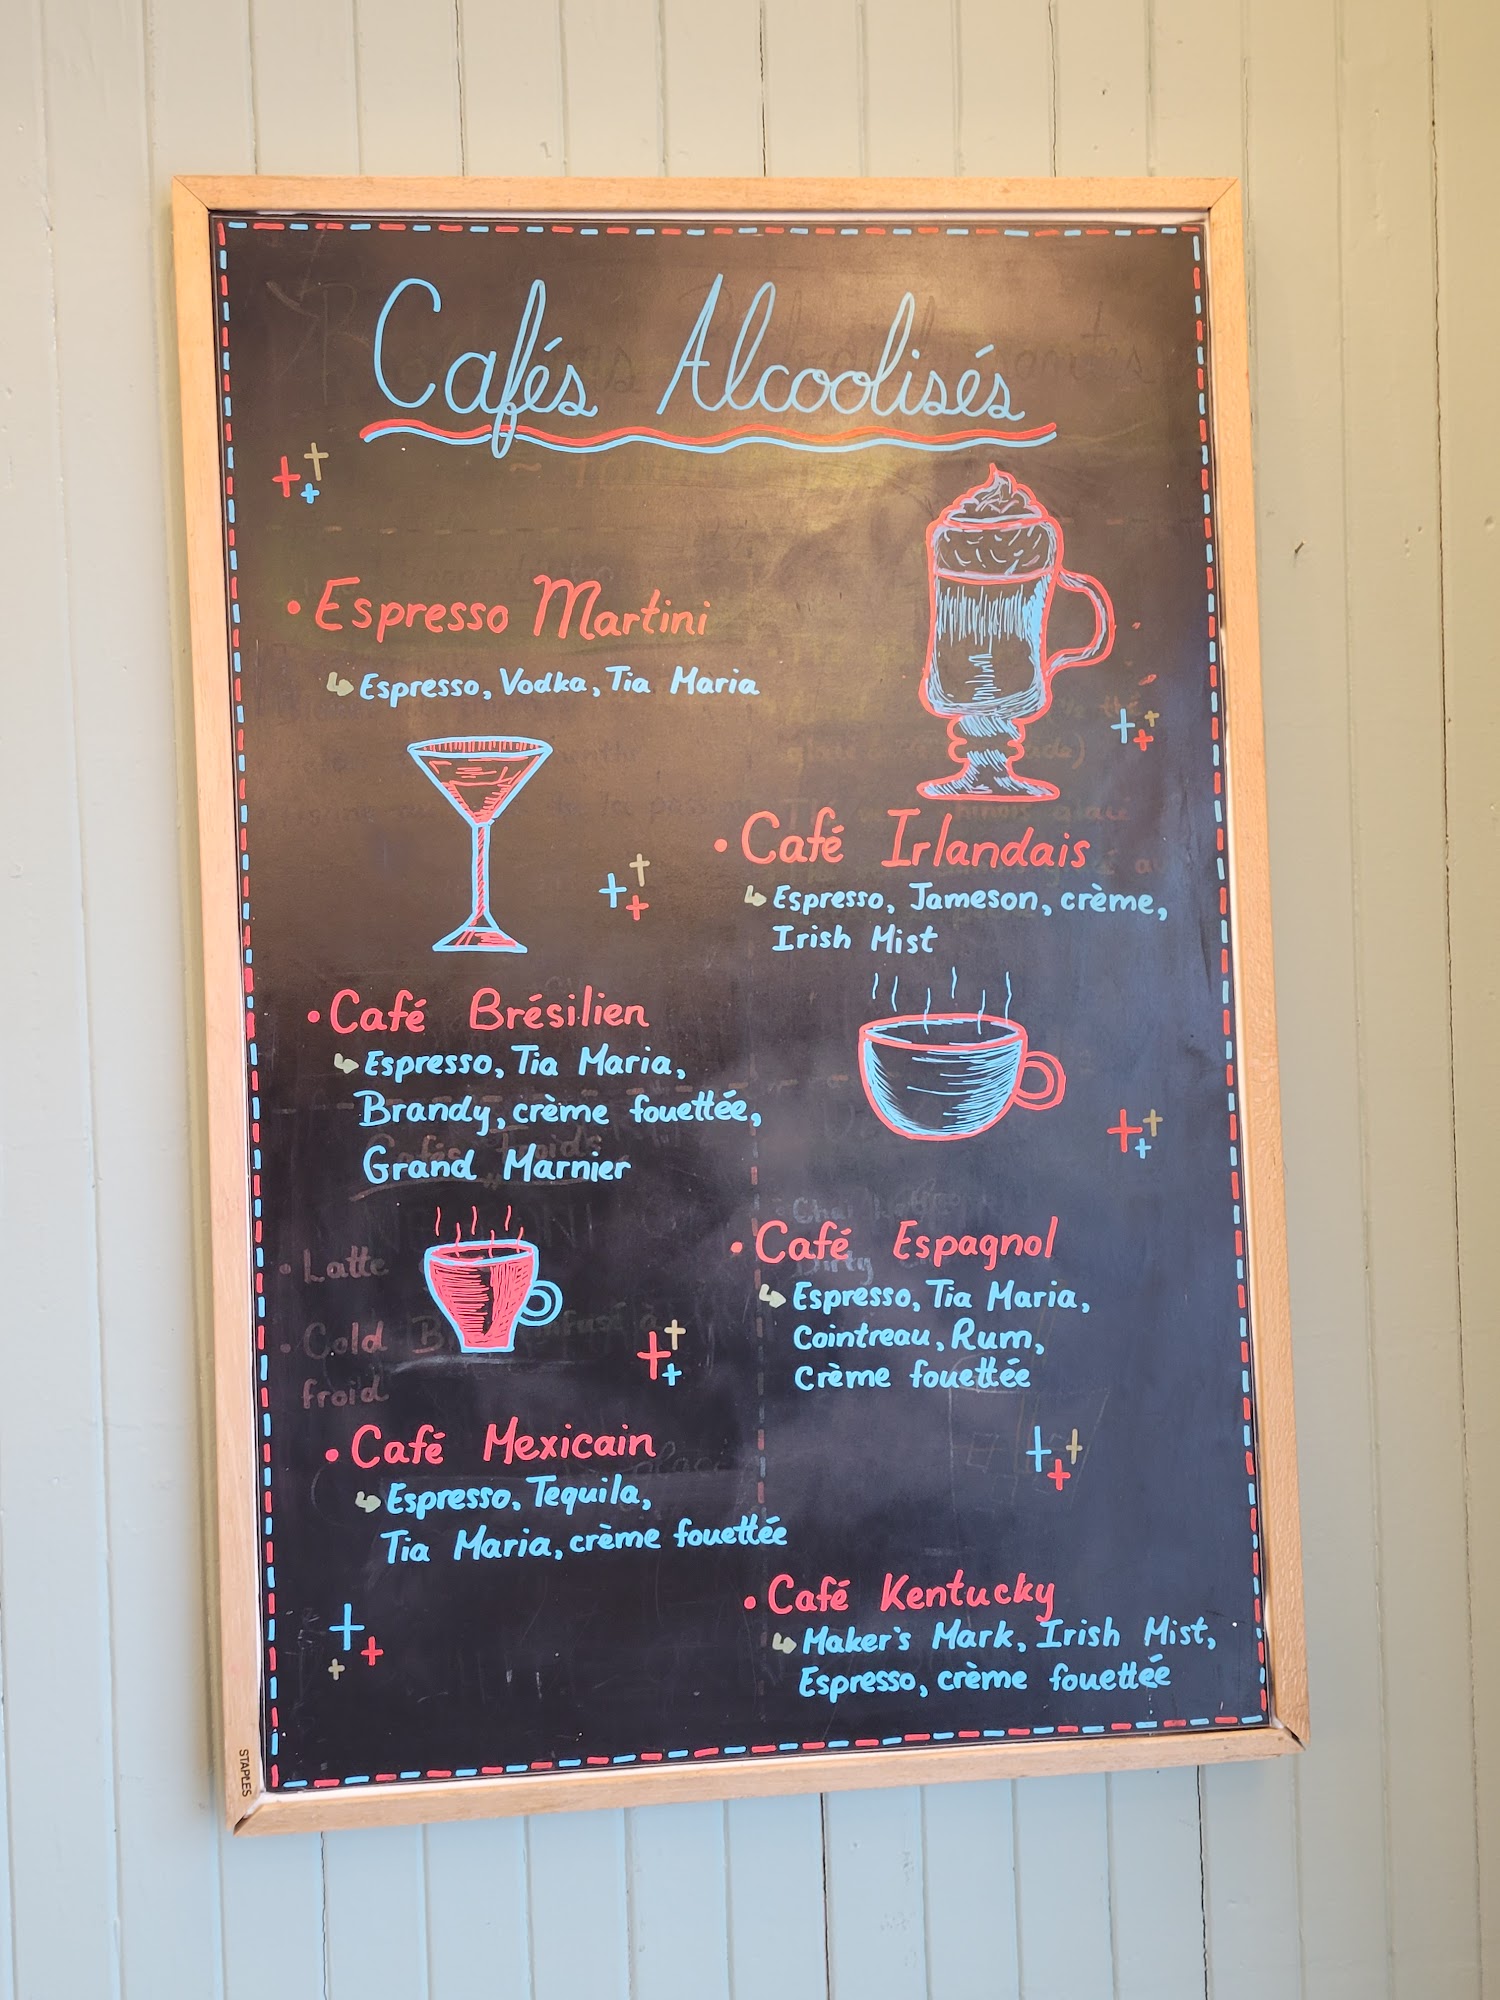 Cafés Alcoolisés
• Espresso Martini
↳ Espresso, Vodka, Tia Maria
• Café Irlandais
↳ Espresso, Jameson, crème,
Irish Mist
• Café Brésilien
↳ Espresso, Tia Maria,
Brandy, crème fouettée,
Grand Marnier
• Café Espagnol
↳ Espresso, Tia Maria,
Cointreau, Rum,
Crème fouettée
• Latte
• Cold
froid
• Café Mexicain
↳ Espresso, Tequila,
Tia Maria, crème fouettée
• Café Kentucky
↳ Maker's Mark, Irish Mist,
Espresso, crème fouettée
STAPLES